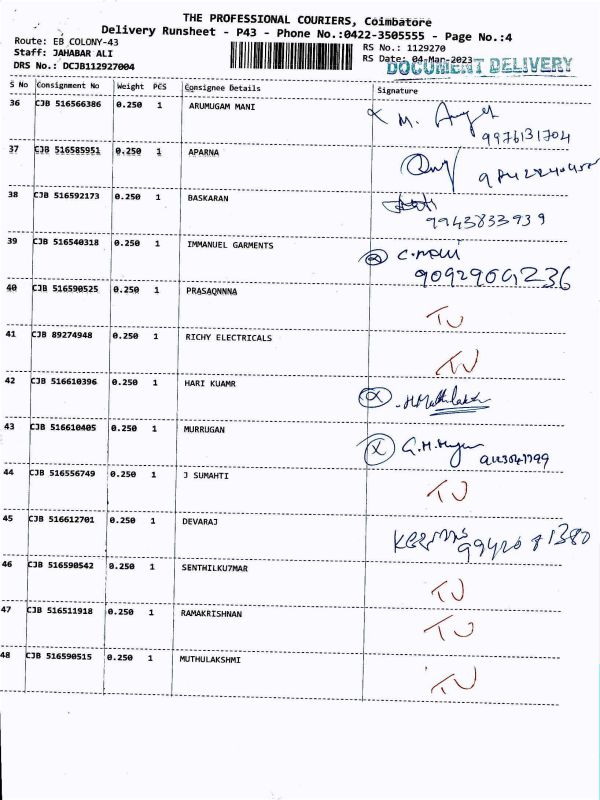 THE PROFESSIONAL COURIERS, Coimbatore
Delivery Runsheet - P43 - Phone No.:0422-3505555 - Page No.:4
Route: EB COLONY-43
Staff: JAHABAR ALI
DRS No.: DCJB112927004
RS No.: 1129270
RS Date: 04-Mar-2023
DOCUMENT DELIVERY
S No Consignment No Weight PCS Consignee Details Signature
36 CJB 516566386 0.250 1 ARUMUGAM MANI
9976131704
37 CJB 516585951 0.250 1 APARNA
38 CJB 516592173 0.250 1 BASKARAN
9943833939
39 CJB 516540318 0.250 1 IMMANUEL GARMENTS
40 CJB 516590525 0.250 1 PRASAQNNNA TJ
41 CJB 89274948 0.250 1 RICHY ELECTRICALS TJ
42 CJB 516610396 0.250 1 HARI KUAMR
43 CJB 516610405 0.250 1 MURRUGAN
44 CJB 516556749 0.250 1 J SUMAHTI TJ
45 CJB 516612701 0.250 1 DEVARAJ
46 CJB 516590542 0.250 1 SENTHILKU7MAR TJ
47 CJB 516511918 0.250 1 RAMAKRISHNAN TJ
48 CJB 516590515 0.250 1 MUTHULAKSHMI TJ